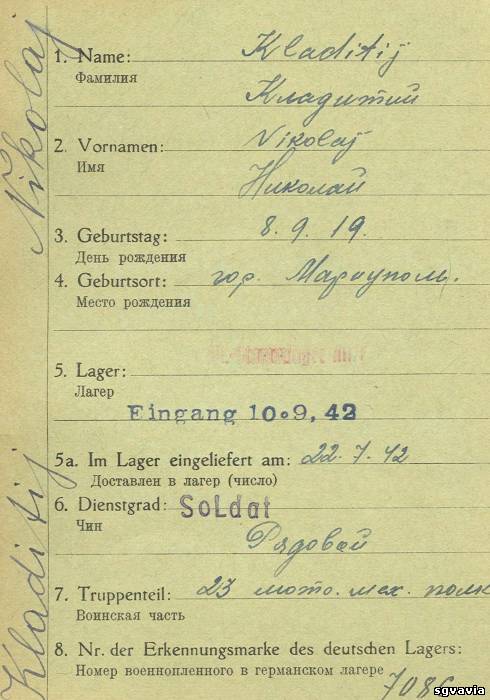 Nikolaj
Kladitij
1. Name: Kladitij
Фамилия Кладитий
2. Vornamen: Nikolaj
Имя Николай
3. Geburtstag: 8. 9. 19.
День рождения
4. Geburtsort: гор. Мариуполь.
Место рождения
5. Lager:
Лагерь
Eingang 10.9, 42
5a. Im Lager eingeliefert am: 22. 7. 42
Доставлен в лагерь (число)
6. Dienstgrad: Soldat
Чин Рядовой
7. Truppenteil: 23 мото. мех. полк
Воинская часть
8. Nr. der Erkennungsmarke des deutschen Lagers:
Номер военнопленного в германском лагере
sgvavia